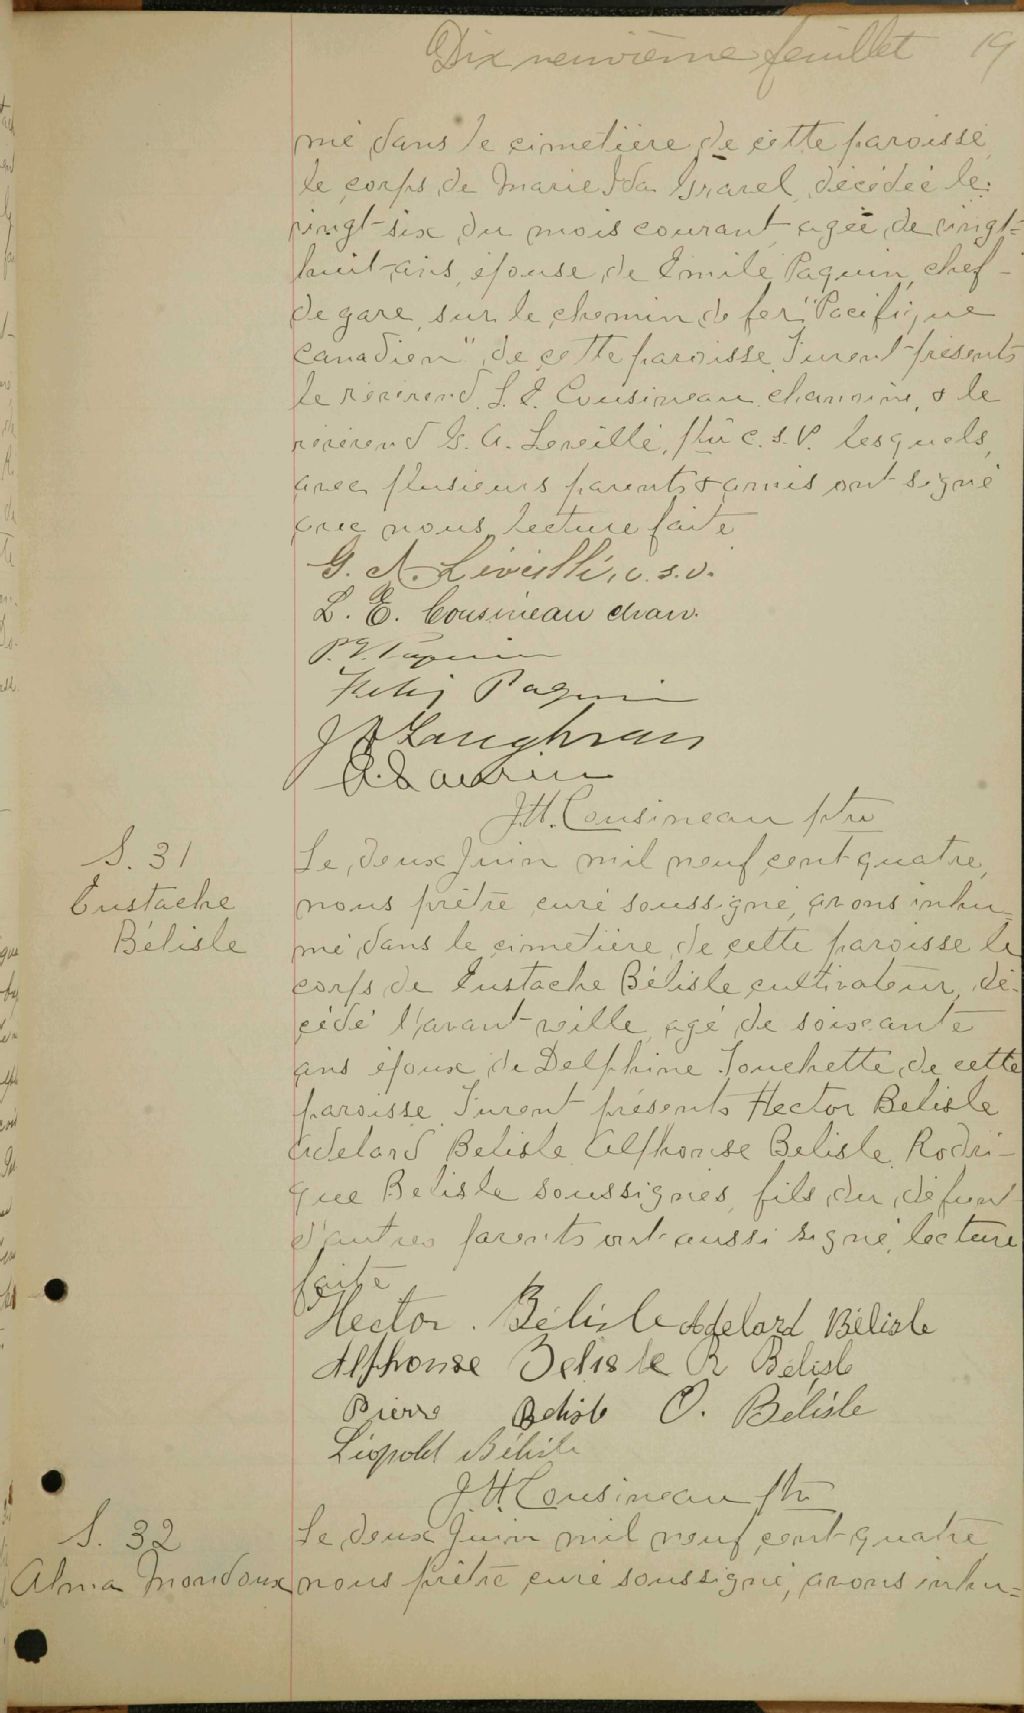 Dix neuvième feuillet 19
mé dans le cimetière de cette paroisse
le corps de Marie Ida Gravel, décédée le
vingt-six du mois courant, agée de vingt-
huit ans, épouse de Emile Paquin, chef-
de gare, sur le chemin de fer "Pacifique
Canadien", de cette paroisse. Furent présents
le révérend L. E. Cousineau, chanoine, & le
révérend G. A. Léveillé, ptre c. s. v. lesquels,
avec plusieurs parents & amis ont signé
avec nous, lecture faite
G. A. Léveillé, c. s. v.
L. E. Cousineau chan.
Paquin
Paquin
J. H. Cousineau ptre
S. 31
Eustache
Bélisle
Le deux Juin mil neuf cent quatre,
nous prêtre curé soussigné, avons inhu=
mé dans le cimetière de cette paroisse le
corps de Eustache Bélisle, cultivateur, dé-
cédé l'avant-veille, agé de soixante
ans époux de Delphine Touchette, de cette
paroisse. Furent présents Hector Belisle
Adelard Belisle Alphonse Belisle, Rodri-
gue Belisle soussignés, fils du défunt
d'autres parents ont aussi signé, lecture
faite
Hector Bélisle Adelard Bélisle
Alphonse Belisle R Bélisle
Pierre Belisle O. Bélisle
Léopold Bélisle
J. H. Cousineau ptre
S. 32
Alma Mondoux
Le deux Juin mil neuf cent quatre
nous prêtre curé soussigné, avons inhu=